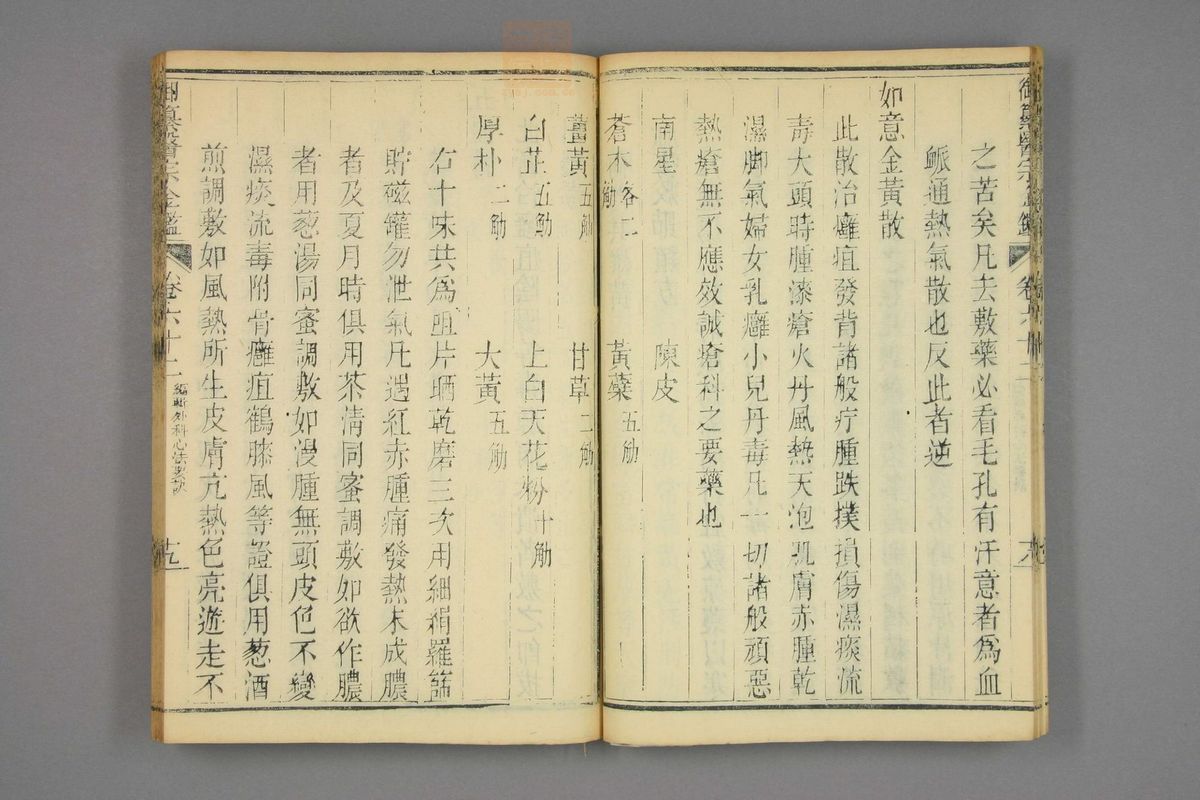 御纂醫宗金鑑 卷六十二
之苦矣凡去敷藥必看毛孔有汗意者爲血
䘑通熱氣散也反此者逆
如意金黃散
此散治癰疽發背諸般疔腫跌撲損傷濕痰流
毒大頭時腫漆瘡火丹風熱天泡肌膚赤腫乾
濕脚氣婦女乳癰小兒丹毒凡一切諸般頑惡
熱瘡無不應效誠瘡科之要藥也
南星 陳皮
蒼木各二觔 黃蘗五觔
薑黃五觔 甘草二觔
白芷五觔 上白天花粉十觔
厚朴二觔 大黃五觔
右十味共爲咀片晒乾磨三次用細絹羅篩
貯磁罐勿泄氣凡遇紅赤腫痛發熱未成膿
者及夏月時俱用茶清同蜜調敷如欲作膿
者用葱湯同蜜調敷如漫腫無頭皮色不變
濕痰流毒附骨癰疽鶴膝風等證俱用葱酒
煎調敷如風熱所生皮膚亢熱色亮遊走不
御纂醫宗金鑑 卷六十二 編輯外科心法要訣 十九